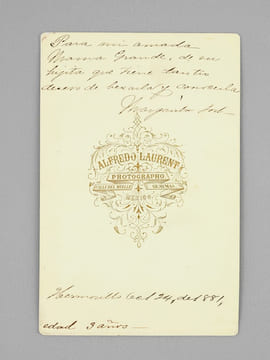 Para mi amada
Mama Grande, de su
hijita que tiene tantos
deseos de besarla y conocerla
Margarita
ALFREDO LAURENT
PHOTOGRAPHO
GUAYMAS
MEXICO
Hermosillo Oct 24, de 1881,
edad 3 años